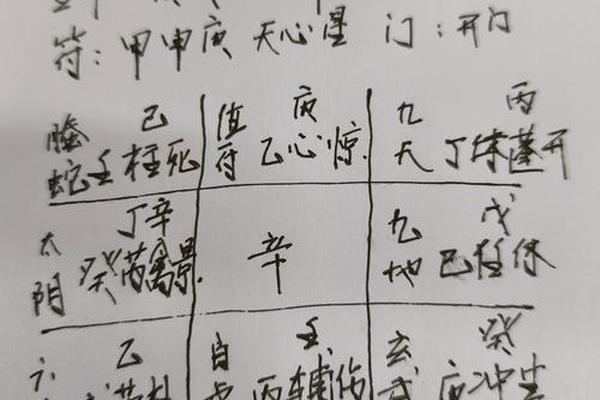 符：甲申庚 天心星 门：开门
己 值 庚 九 丙
螣
蛇 壬柱死 符 乙心惊 天 丁 蓬开
太 丁辛 九 戊
阴 癸芮 景 辛 地 己任休
乙 白 壬 玄 癸
丙辅伤 武 庚冲生